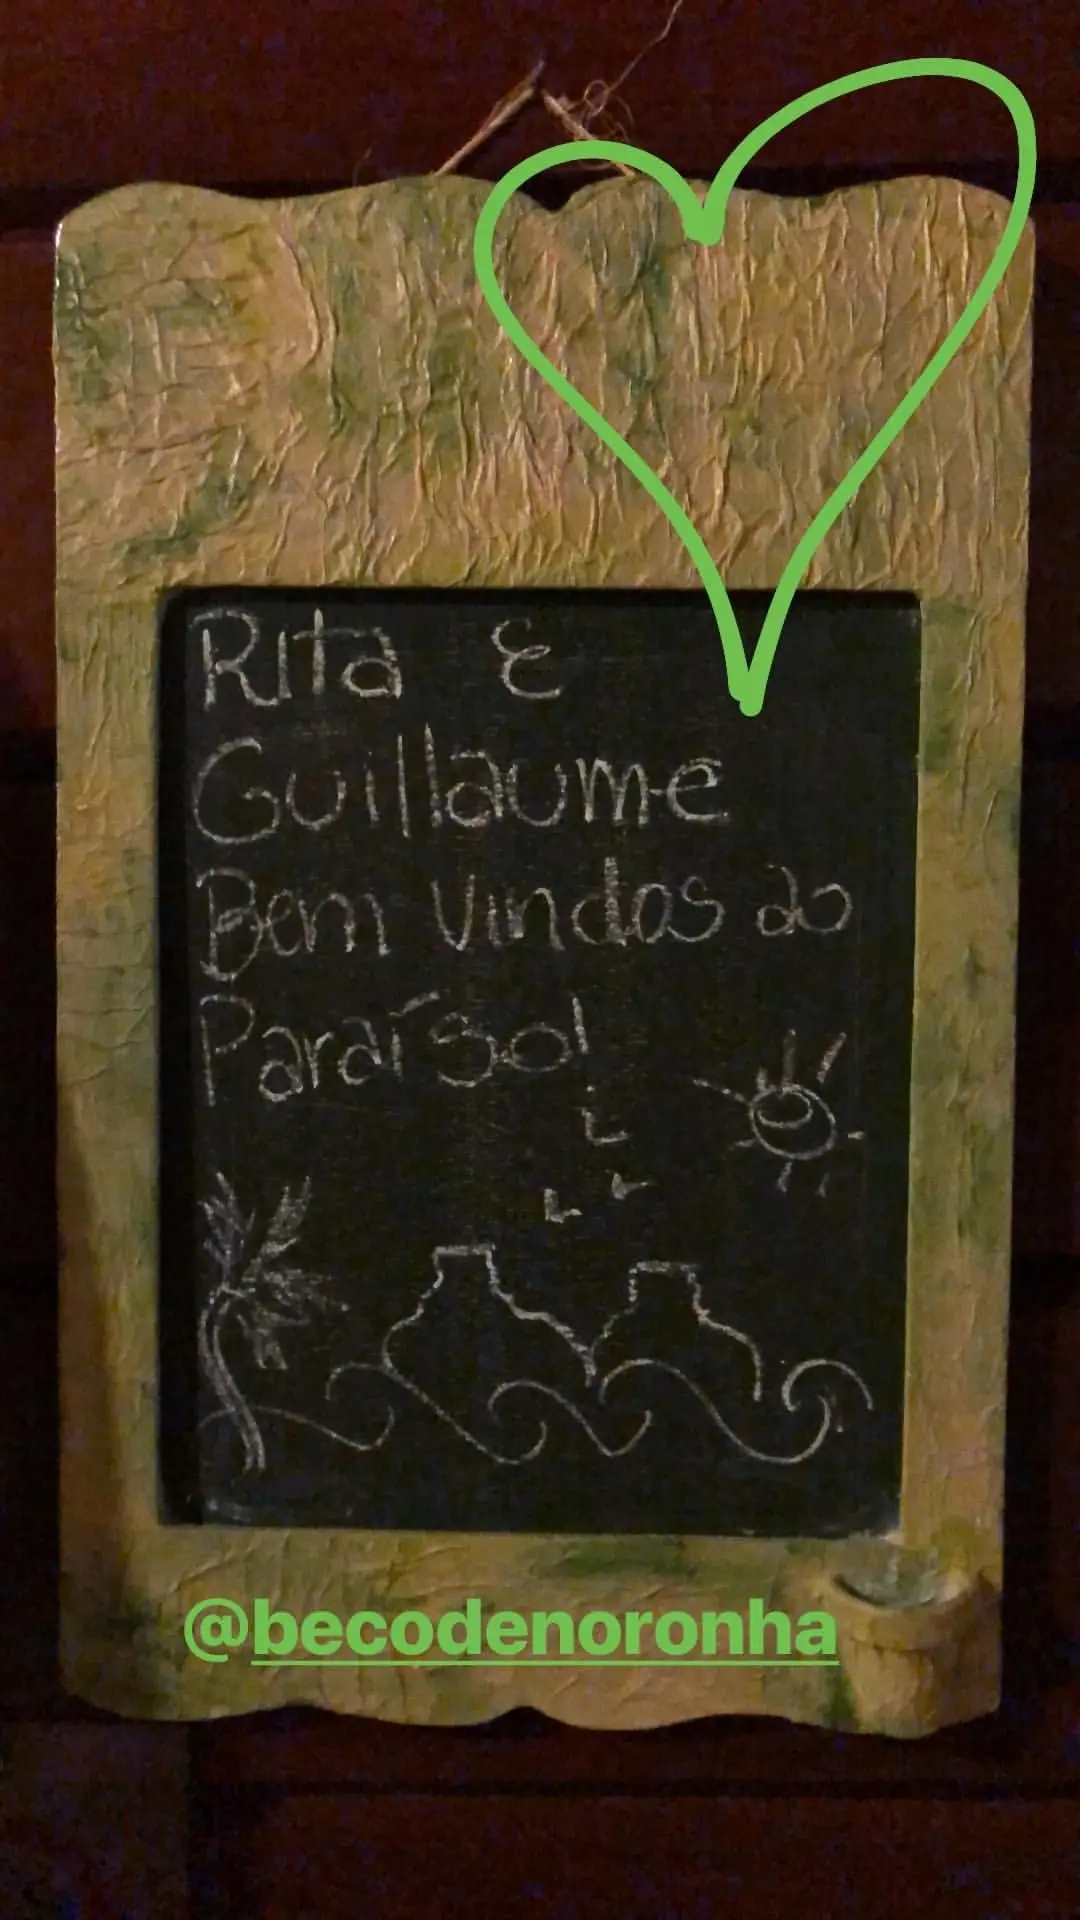 Rita &
Guillaume
Bem Vindos ao
Paraíso!
@becodenoronha